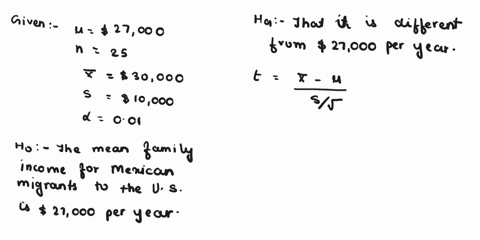 Given:- μ = $27,000
n = 25
x̄ = $30,000
s = $10,000
α = 0.01
H0:- The mean family
income for Mexican
migrants to the U.S.
is $27,000 per year.
Ha:- That it is different
from $27,000 per year.
t = x̄ - μ
s/√